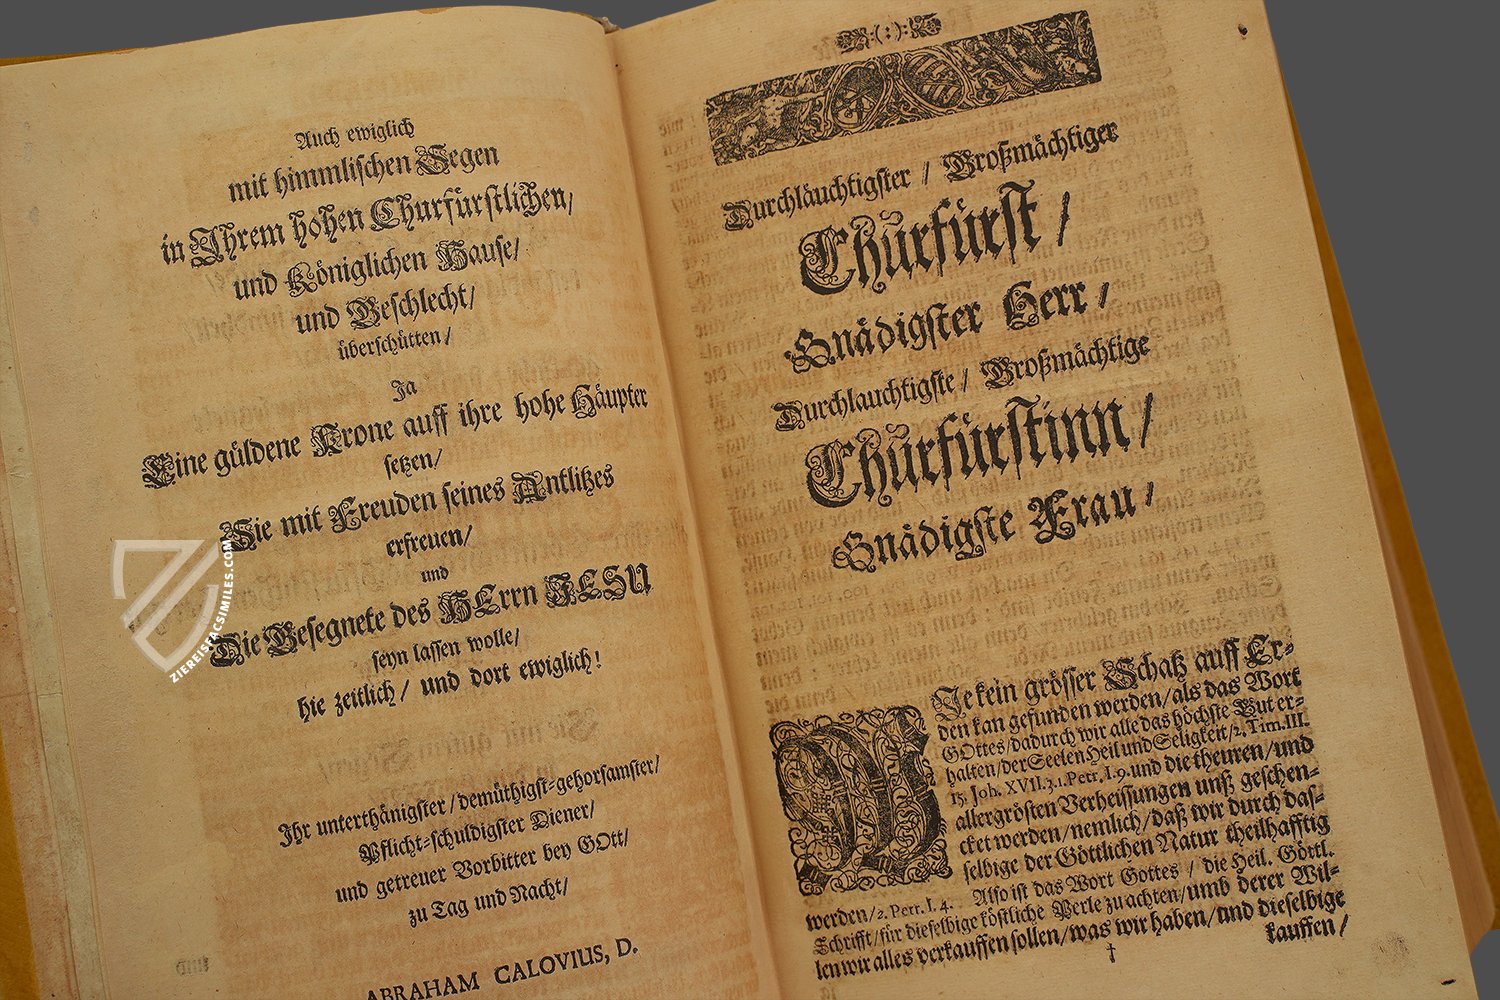 Auch ewiglich
mit himmlischen Segen
in Ihrem hohen Churfürstlichen/
und Königlichen Hause/
und Geschlecht/
überschütten/
Ja
Eine güldene Krone auff ihre hohe Häupter
setzen/
Sie mit Freuden seines Antlitzes
erfreuen/
und
Die Gesegnete des HErrn JESU
seyn lassen wolle/
hie zeitlich/ und dort ewiglich!
Ihr unterthänigster/demüthigst-gehorsamster/
Pflicht-schuldigster Diener/
und getreuer Vorbitter bey GOtt/
zu Tag und Nacht/
ABRAHAM CALOVIUS, D.
ZIEREISFACSIMILES.COM
Durchläuchtigster / Großmächtiger
Churfürst /
Gnädigster Herr /
Durchlauchtigste / Großmächtige
Churfürstinn /
Gnädigste Frau /
WJe kein grösser Schatz auff Er-
den kan gefunden werden/als das Wort
GOttes/dadurch wir alle das höchste Gut er-
halten/der Seelen Heil und Seligkeit/2. Tim. III.
15. Joh. XVII.3.1. Petr. I.9. und die theuren/und
allergrösten Verheissungen unß geschen-
cket werden/nemlich/daß wir durch das-
selbige der Göttlichen Natur theilhafftig
werden/2. Petr. I. 4. Also ist das Wort Gottes / die Heil. Göttl.
Schrifft/für dieselbige köstliche Perle zu achten/umb derer Wil-
len wir alles verkauffen sollen/was wir haben/und dieselbige
† kauffen /